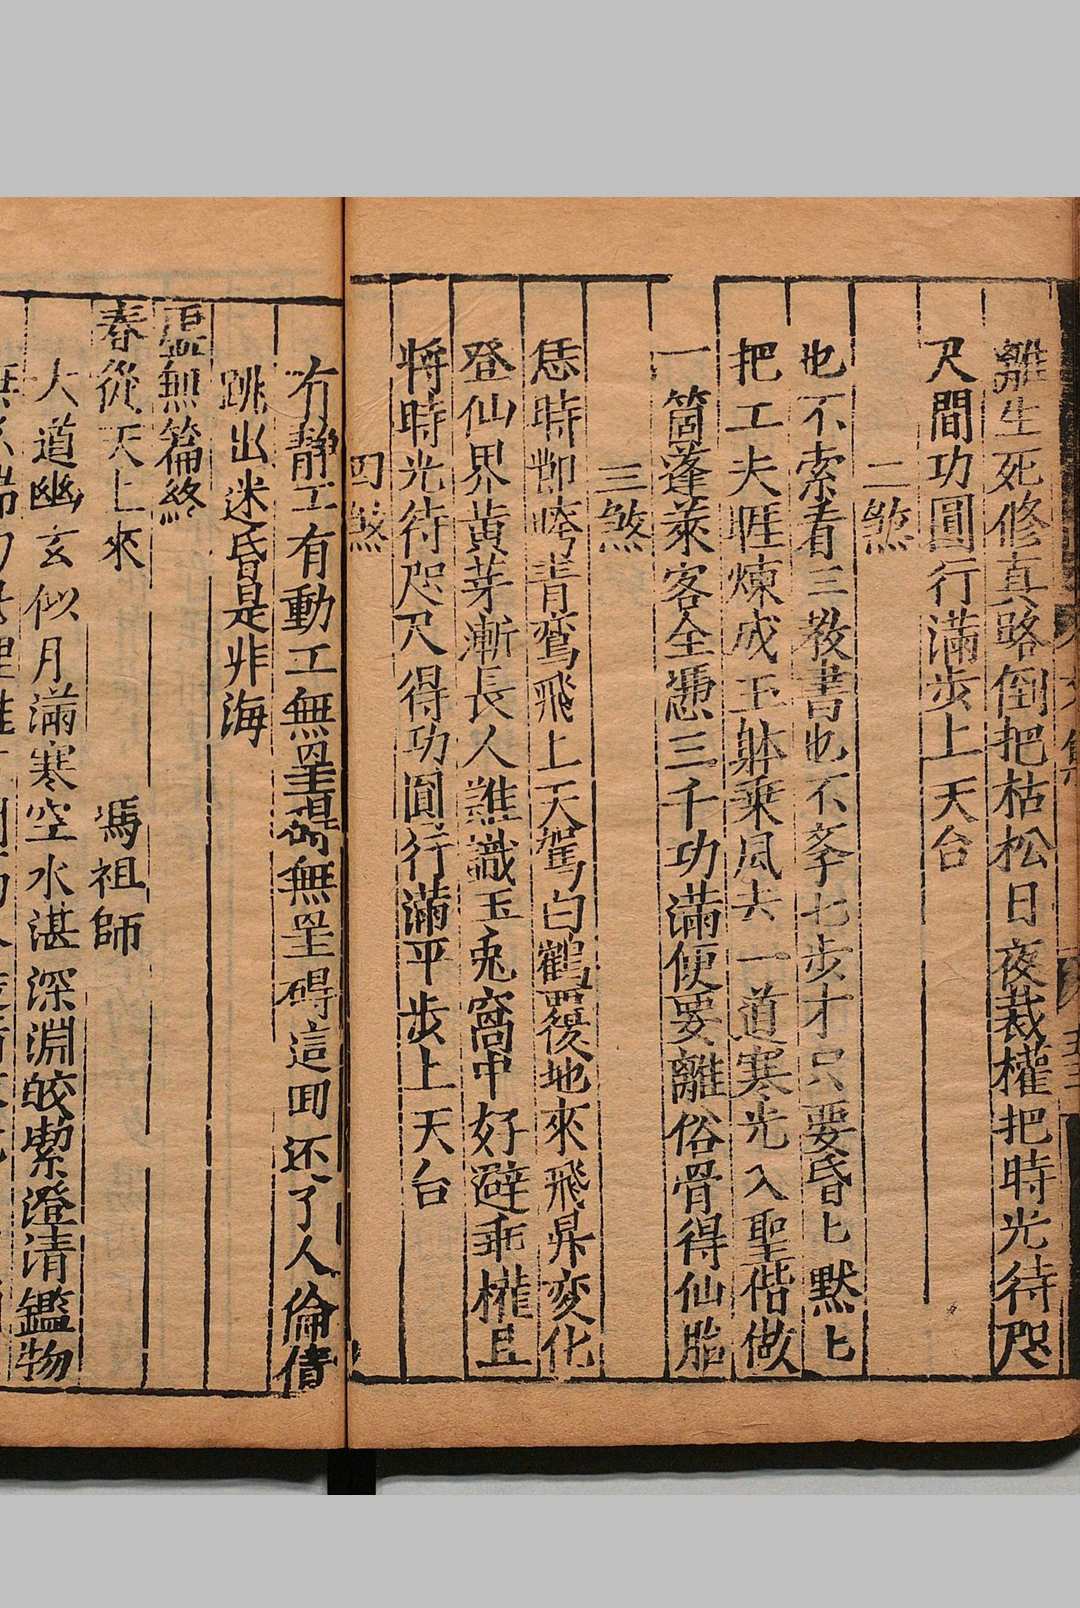 離生死修真路倒把枯松日夜栽權把時光待咫
尺間功圓行滿步上天台
二煞
也不索看三教書也不孝七步才只要昏匕默匕
把工夫睚煉成玉躰乗風去一道寒光入聖偕做
一箇蓬萊客全憑三千功滿便要離俗骨得仙胎
三煞
恁時卸啼青鸞飛上天駕白鶴覆地來飛昇変化
登仙界黄芽漸長人誰識玉兎窩中好避乖權且
將時光待咫尺得功圓行滿平步上天台
四煞
冇靜工有動工無罣碍無罣碍這囬还了人倫債
跳出迷昏是非海
虛無篇終
春從天上來 馮祖師
大道幽玄似月滿寒空水湛深淵皎潔澄清鑑物